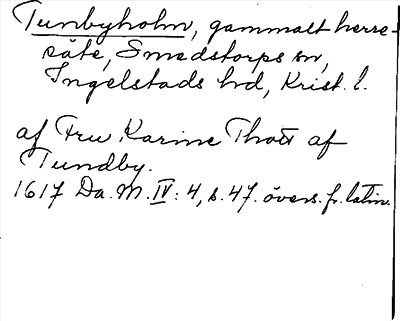 Tunbyholm, gammalt herre-
säte, Smedstorps sn,
Ingelstads hd, Krist. l.
af Fru Karine Thott af
Tundby.
1617 Da. M. IV: 4, s. 47. övers. fr. latin.